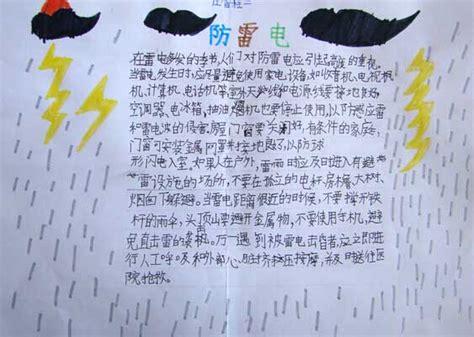 防雷电
在雷电多发的季节人们对防雷电应引起高度的重视。
当雷电发生时，应尽量避免使用家电设备，如收音机、电视机
机、计算机、电话机等，室外天线和电源线要接地良好，
空调器、电冰箱，抽油烟机也要停止使用，以防感应雷
和雷电波的侵害，门窗要关闭好，有条件的家庭，
门窗可安装金属网罩并接地良好，以防球
形闪电入室。如果人在户外，雷雨时应及时进入有避
雷设施的场所，不要在孤立的电杆房檐、大树、
烟囱下躲避。当雷电距离很近的时候，不要撑开铁
杆的雨伞，头顶上要避开金属物，不要使用手机，避
免直击雷的袭击，万一遇到被雷电击昏者，应立即进
行人工呼吸和外部心脏挤压按摩，并及时送往医
院抢救。